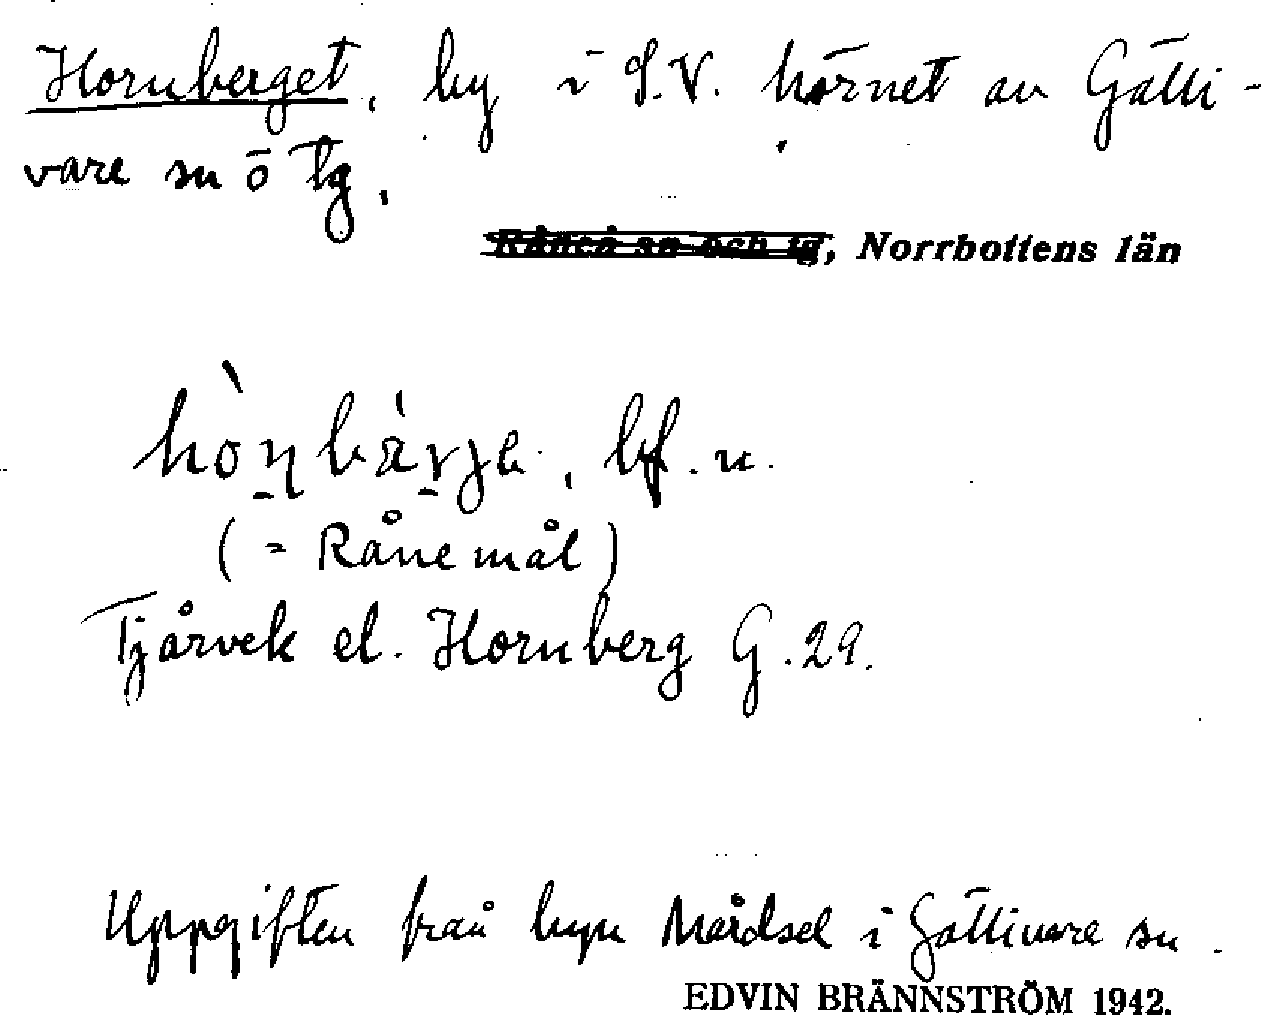 Hornberget, by i S.V. hörnet av Gälli-
vare sn o tg.
Råneå sn och tg, Norrbottens län
hòn̠bä̀r̠je, bf. n.
(= Råne mål)
Tjårvek el. Hornberg G.29.
Uppgiften från byn Mårdsel i Gällivare sn.
EDVIN BRÄNNSTRÖM 1942.